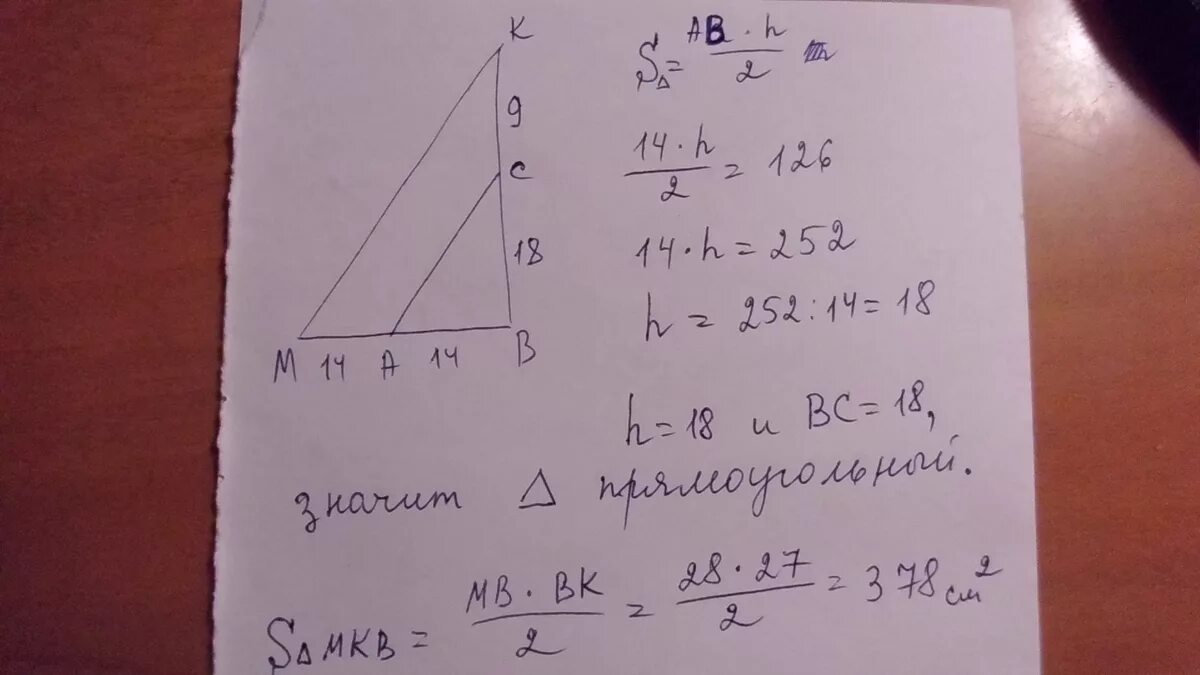 K
9
C
18
M 14 A 14 B
S△ = AB · h / 2
14 · h / 2 = 126
14 · h = 252
h = 252 : 14 = 18
h = 18 и BC = 18,
значит △ прямоугольный.
S△MKB = MB · BK / 2 = 28 · 27 / 2 = 378 см²